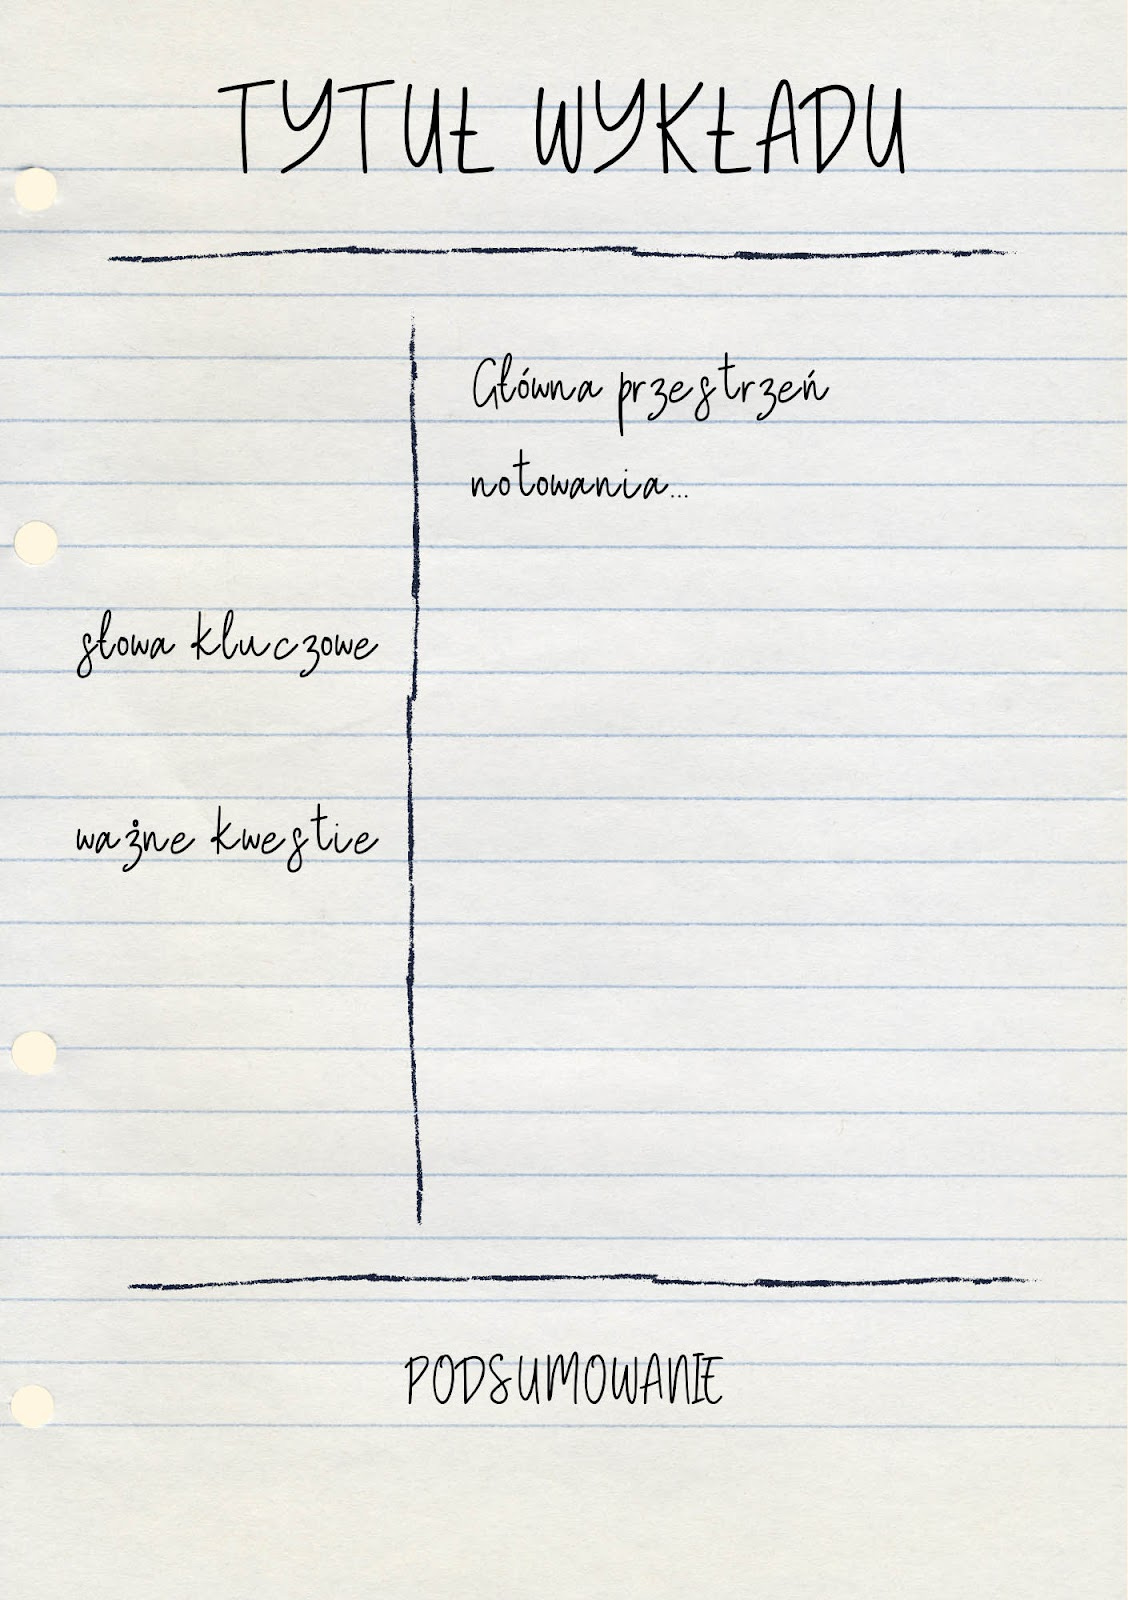 TYTUŁ WYKŁADU
Główna przestrzeń
notowania...
słowa kluczowe
ważne kwestie
PODSUMOWANIE